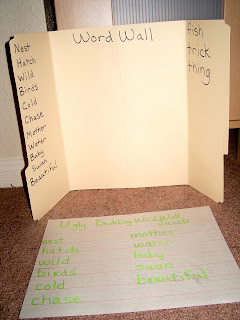 Word Wall
Nest
Hatch
Wild
Birds
Cold
Chase
Mother
Water
Baby
Swan
Beautiful
fish
trick
thing
Ugly Duckling Word Wall
Jacob
nest
hatch
wild
birds
cold
chase
mother
water
baby
swan
Beautiful